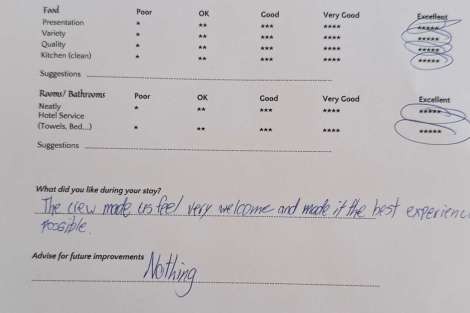 Food Poor OK Good Very Good Excellent
Presentation * ** *** **** *****
Variety * ** *** **** *****
Quality * ** *** **** *****
Kitchen (clean) * ** *** **** *****
Suggestions
Rooms/ Bathrooms Poor OK Good Very Good Excellent
Neatly * ** *** **** *****
Hotel Service
(Towels, Bed...) * ** *** **** *****
Suggestions
What did you like during your stay?
The crew made us feel very welcome and made it the best experienc
possible.
Advise for future improvements Nothing